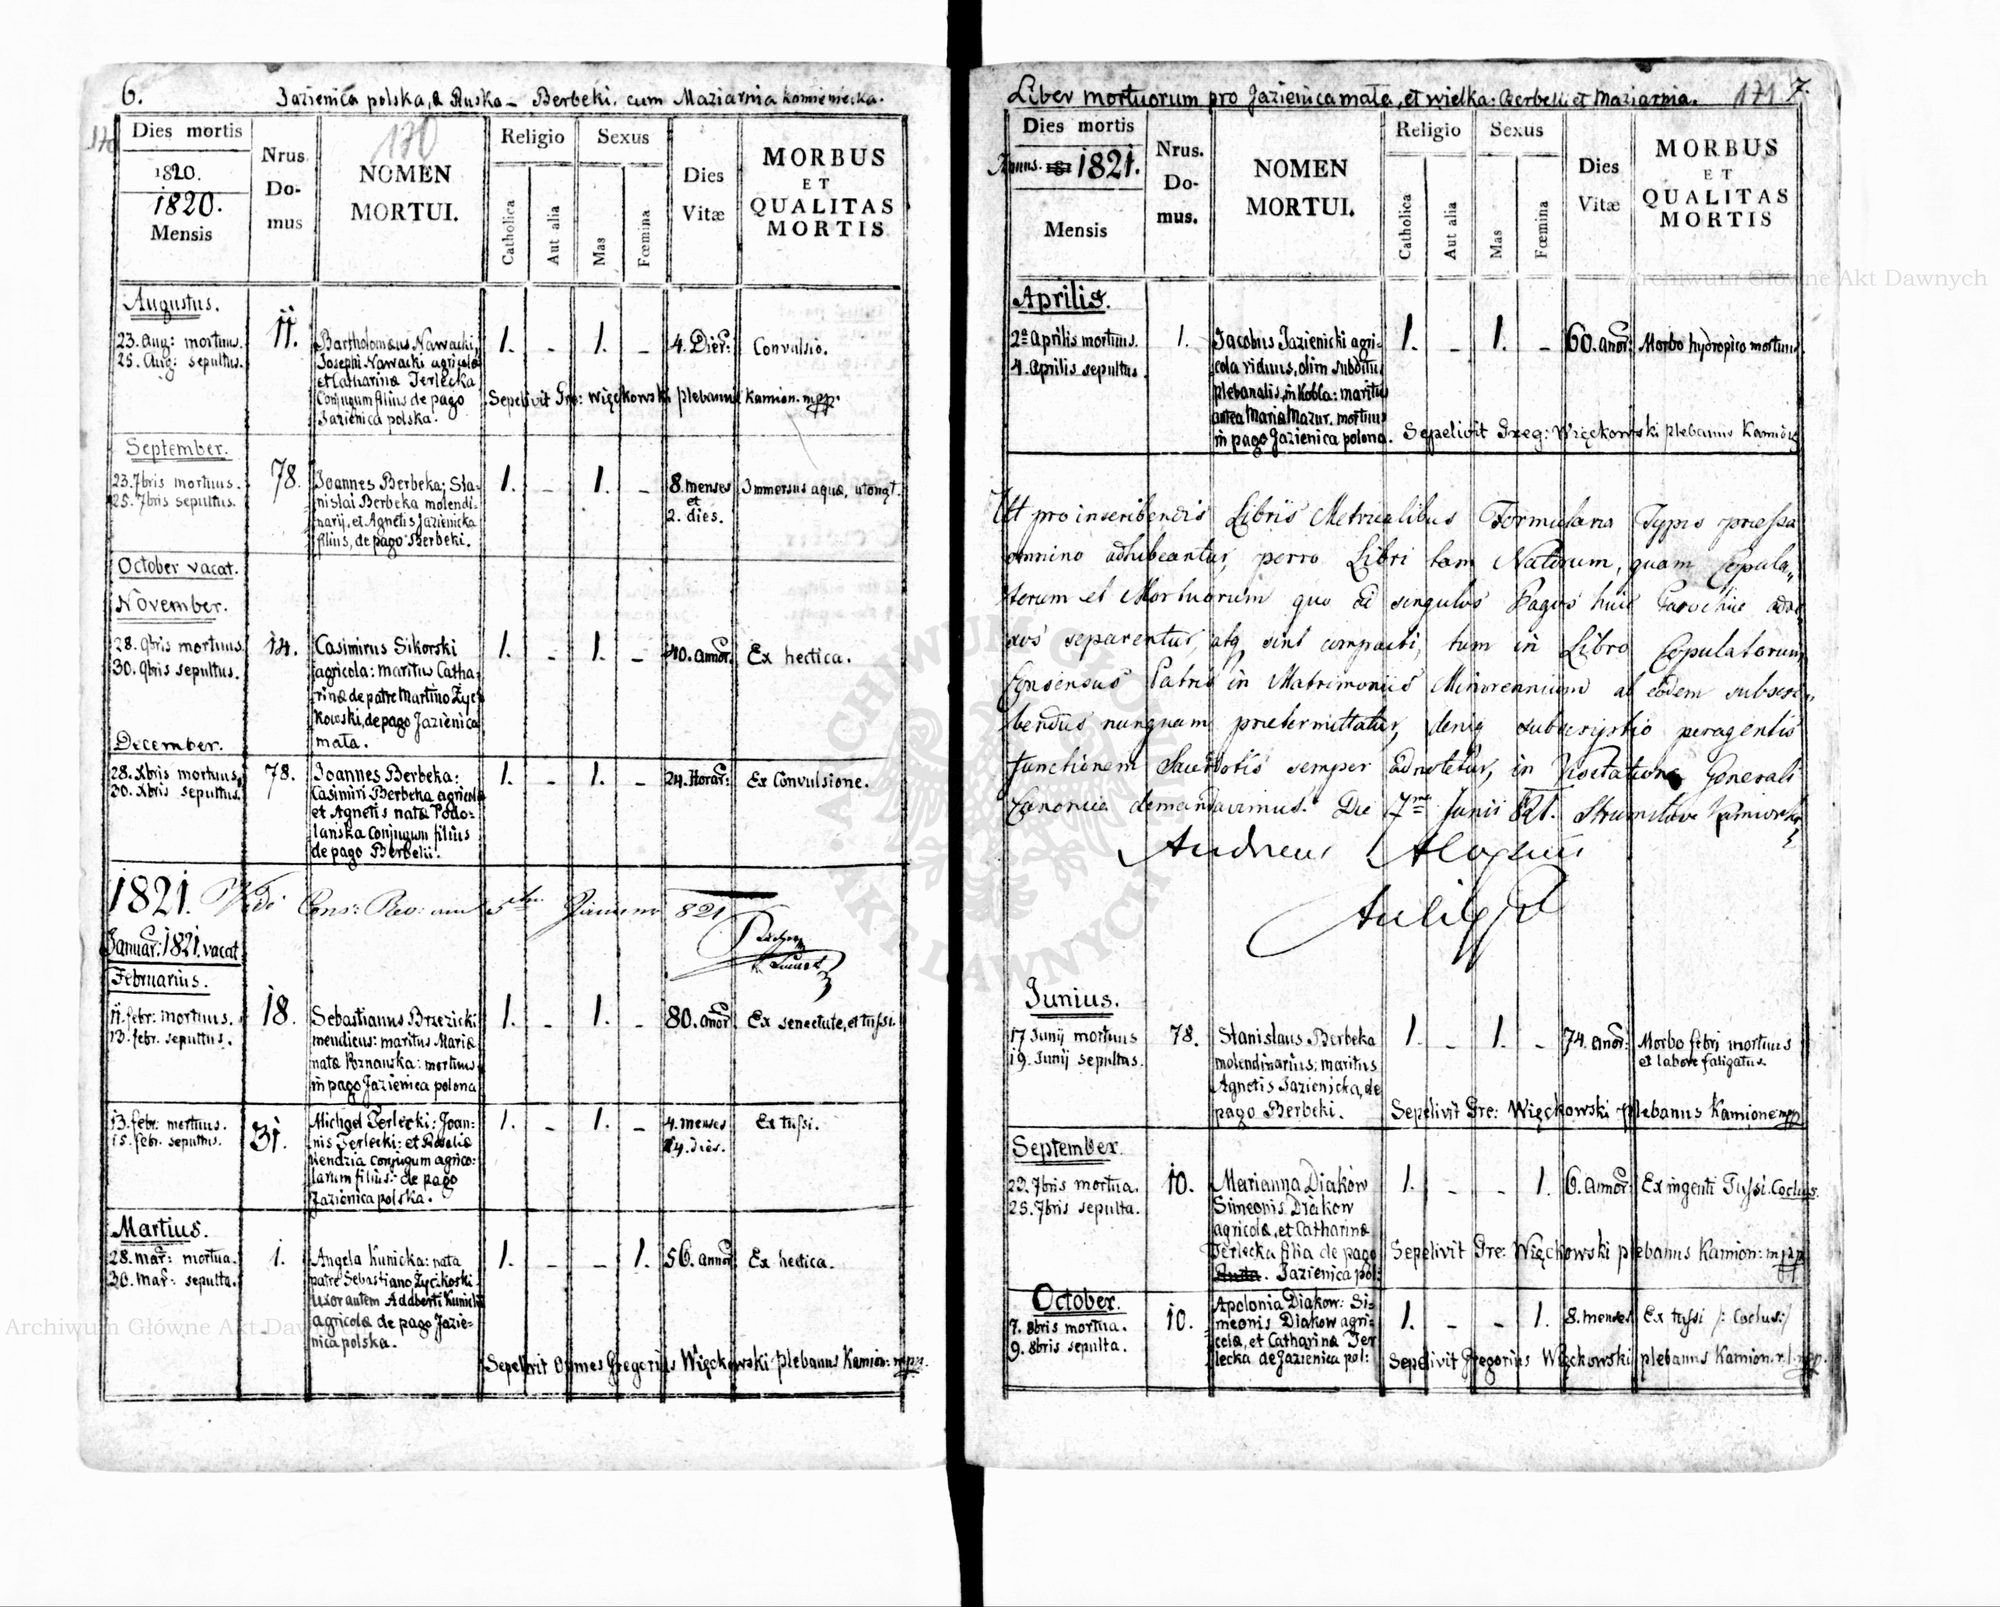 6.
Jazienica polska, & Ruska – Berbeki. cum Maziarnia kamieniecka.
170
170
Dies mortis
1820.
1820.
Mensis
Nrus.
Do-
mus
NOMEN
MORTUI.
Religio
Catholica
Aut alia
Sexus
Mas
Fœmina
Dies
Vitæ
MORBUS
ET
QUALITAS
MORTIS
Augustus.
23. Aug: mortuus.
25. Aug: sepultus.
11.
Bartholomæus Nawacki,
Josephi Nawacki agricolæ
et Catharinæ Terlecka
Conjugum filius de pago
Jazienica polska.
1. - 1. -
4. Dier:
Convulsio.
Sepelivit Gre: Więckowski plebanus Kamion. mpp.
September.
23. 7bris mortuus.
25. 7bris sepultus.
78.
Joannes Berbeka; Sta-
nislai Berbeka molendi-
narij, et Agnetis Jazienicka
filius, de pago Berbeki.
1. - 1. -
8. menses
et
2. dies.
Immersus aquæ,
October vacat.
November.
28. 9bris mortuus.
30. 9bris sepultus.
14.
Casimirus Sikorski
agricola: maritus Catha-
rinæ de patre Martino Życz
kowski, de pago Jazienica
mała.
1. - 1. -
40. annor:
Ex hectica.
December.
28. Xbris mortuus.
30. Xbris sepultus.
78.
Joannes Berbeka:
Casimiri Berbeka agricolæ
et Agnetis nata Podo-
lanska Conjugum filius
de pago Berbeki.
1. - 1. -
24. Horar:
Ex Convulsione.
1821. Vidi 821
Januar: 1821. vacat
Februarius.
11. febr: mortuus.
13. febr. sepultus.
18.
Sebastianus Brzezicki
mendicus: maritus Mariæ
natæ Poznanska: mortuus
in pago Jazienica polona
1. - 1. -
80. anor:
Ex senectute, et tussi.
13. febr: mortuus.
15. febr. sepultus.
31.
Michael Terlecki: Joan-
nis Terlecki: et Rosaliæ
Kendzia conjugum agrico-
larum filius: de pago
Jazienica polska.
1. - 1. -
4. menses
14. dies.
Ex tussi.
Martius.
28. mar: mortua.
30. mar: sepulta.
1.
Angela Kunicka: nata
patre Sebastiano Życzkoski
uxor autem Adalberti Kunicki
agricolæ de pago Jazie-
nica polska.
1. - - 1.
56. annor:
Ex hectica.
Sepelivit Omnes Gregorius Więckowski plebanus Kamion: mpp.
Liber mortuorum pro Jazienica mała, et wielka: Berbeki et Maziarnia.
171
7.
Dies mortis
Annus. 1821.
Mensis
Nrus.
Do-
mus.
NOMEN
MORTUI.
Religio
Catholica
Aut alia
Sexus
Mas
Fœmina
Dies
Vitæ
MORBUS
ET
QUALITAS
MORTIS
Aprilis.
2a Aprilis mortuus.
4. Aprilis sepultus.
1.
Jacobus Jazienicki agri-
cola viduus, olim subditus
plebanalis, in Kobla: maritus
antea Mariæ Mazur. mortuus
in pago Jazienica polona.
1. - 1. -
60. anor:
Morbo hydropico mortuus.
Sepelivit Greg: Więckowski plebanus Kamion
Ut pro inscribendis Libris Metricalibus Formularia Typis pressa
omnino adhibeantur, porro Libri tam Natorum, quam Copula-
torum et Mortuorum quo ad singulos Pagos huic Parochiæ
separentur, atq sint compacti, tum in Libro Copulatorum
Consensus Patris in Matrimoniis Minorennium ab eodem subscri-
bendus nunquam prætermittatur, deniq subscriptio peragentis
functionem Sacerdotis semper adnotetur, in Visitatione Generali
Canonica demandavimus. Die 7ma Junii 821.
Andreas Aloysius
Junius.
17 Junij mortuus
19. Junij sepultus.
78.
Stanislaus Berbeka
molendinarius; maritus
Agnetis Jazienicka, de
pago Berbeki.
1. - 1. -
74. anor:
Morbo febri mortuus
et labore fatigatus.
Sepelivit Gre: Więckowski plebanus Kamione mpp
September.
23. 7bris mortua.
25. 7bris sepulta.
10.
Marianna Diakow
Simeonis Diakow
agricolæ, et Catharinæ
Terlecka filia de pago
Jazienica pol:
1. - - 1.
6. annor:
Ex ingenti Tussi. Coclus.
Sepelivit Gre: Więckowski plebanus Kamion: mpp
October.
7. 8bris mortua.
9. 8bris sepulta.
10.
Apolonia Diakow: Si-
meonis Diakow agri-
colæ, et Catharinæ Ter
lecka de Jazienica pol:
1. - - 1.
8. menses
Ex tussi /: Coclus:/
Sepelivit Gregorius Więckowski plebanus Kamion. r. l. mpp.
Archiwum Główne Akt Dawnych
Archiwum Główne Akt Dawnych
ARCHIWUM GŁÓWNE AKT DAWNYCH